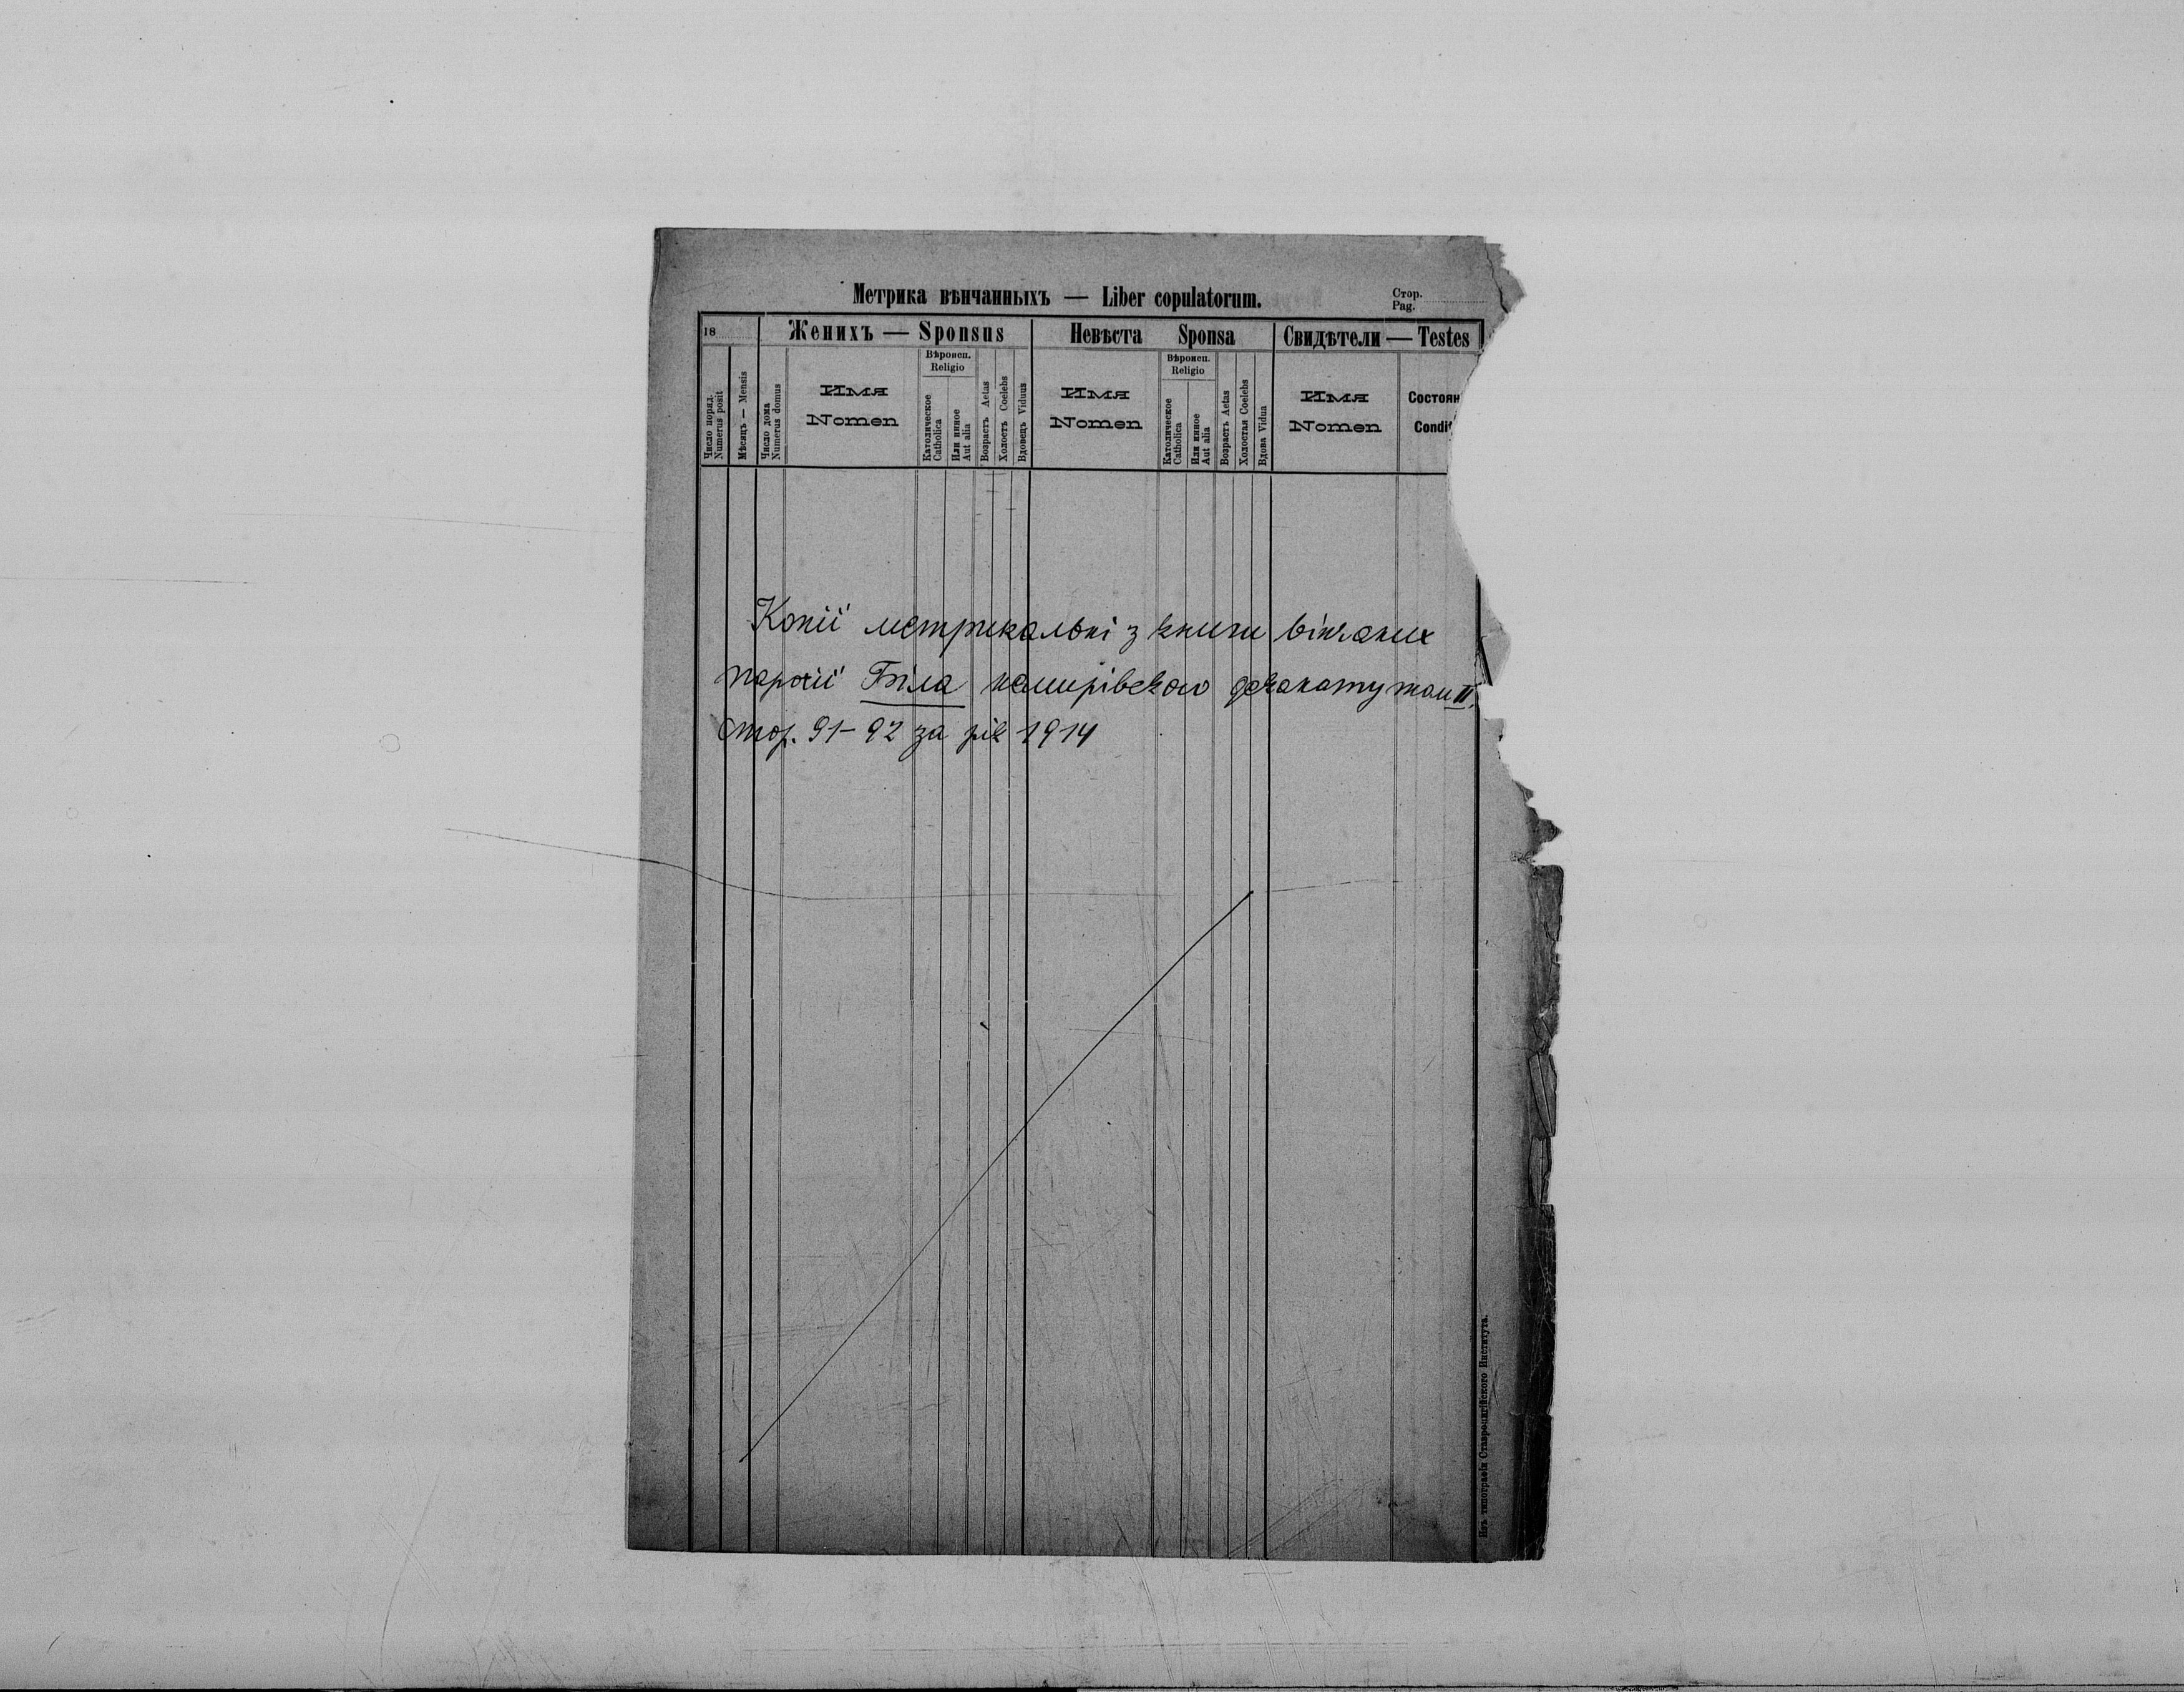 Метрика вѣнчанныхъ — Liber copulatorum.
Стор.
Pag.
18
Женихъ — Sponsus
Невѣста Sponsa
Свидѣтели — Testes
Число поряд.
Numerus posit
Мѣсяцъ — Mensis
Число дома
Numerus domus
Имя
Nomen
Вѣроисп.
Religio
Католическое
Catholica
Или инное
Aut alia
Возрастъ Aetas
Холостъ Coelebs
Вдовецъ Viduus
Имя
Nomen
Вѣроисп.
Religio
Католическое
Catholica
Или инное
Aut alia
Возрастъ Aetas
Холостая Coelebs
Вдова Vidua
Имя
Nomen
Состоян
Condi
Копії метрикальні з книги вінчаних
парохії Біла деканату том II.
Стор. 91-92 за рік 1914
Изъ типографіи Ставропигійского Института.